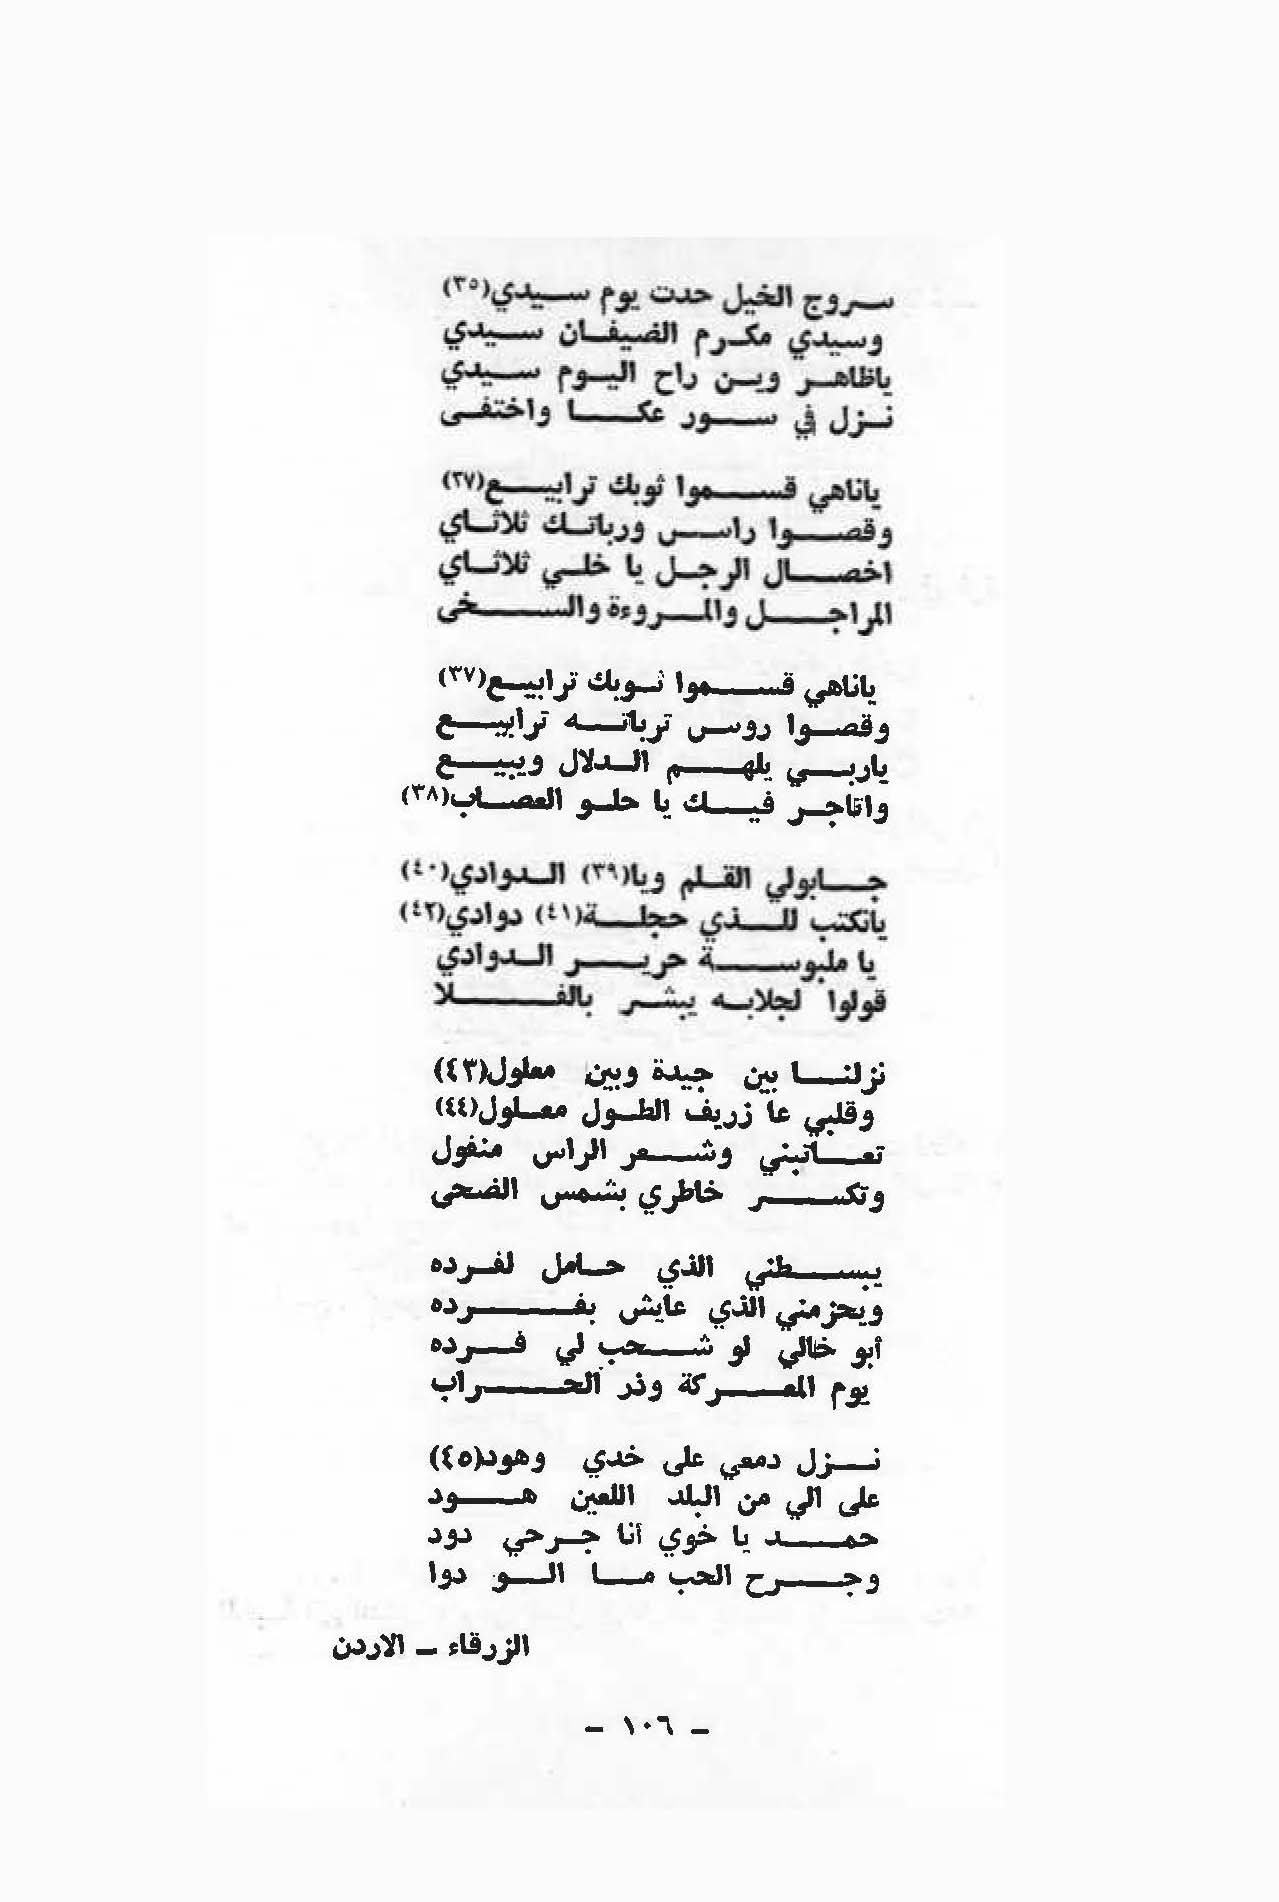 سروج الخيل حدت يوم سيدي(٣٥)
وسيدي مكرم الضيفان سيدي
ياظاهر وين راح اليوم سيدي
نزل في سور عكا واختفى
ياناهي قسموا ثوبك ترابيع(٣٧)
وقصوا راس ورباتك ثلاثاي
اخصال الرجل يا خلي ثلاثاي
المراجل والمروءة والسخى
ياناهي قسموا ثوبك ترابيع(٣٧)
وقصوا روس ترباته ترابيع
ياربي يلهم الدلال ويبيع
واتاجر فيك يا حلو العصاب(٣٨)
جابولي القلم ويا(٣٩) الدوادي(٤٠)
يانكتب للذي حجلة(٤١) دوادي(٤٢)
يا ملبوسة حرير الدوادي
قولوا لجلابه يبشر بالفلا
نزلنا بين جيدة وبين معلول(٤٣)
وقلبي عا زريف الطول معلول(٤٤)
تعاتبني وشعر الراس منفول
وتكسر خاطري بشمس الضحى
يبسطني الذي حامل لفرده
ويحزمني الذي عايش بفرده
أبو خالي لو شحب لي فرده
يوم المعركة وذر الحراب
نزل دمعي على خدي وهود(٤٥)
على الي من البلد اللعين هود
حمد يا خوي أنا جرحي دود
وجرح الحب ما الو دوا
الزرقاء – الاردن
– ١٠٦ –